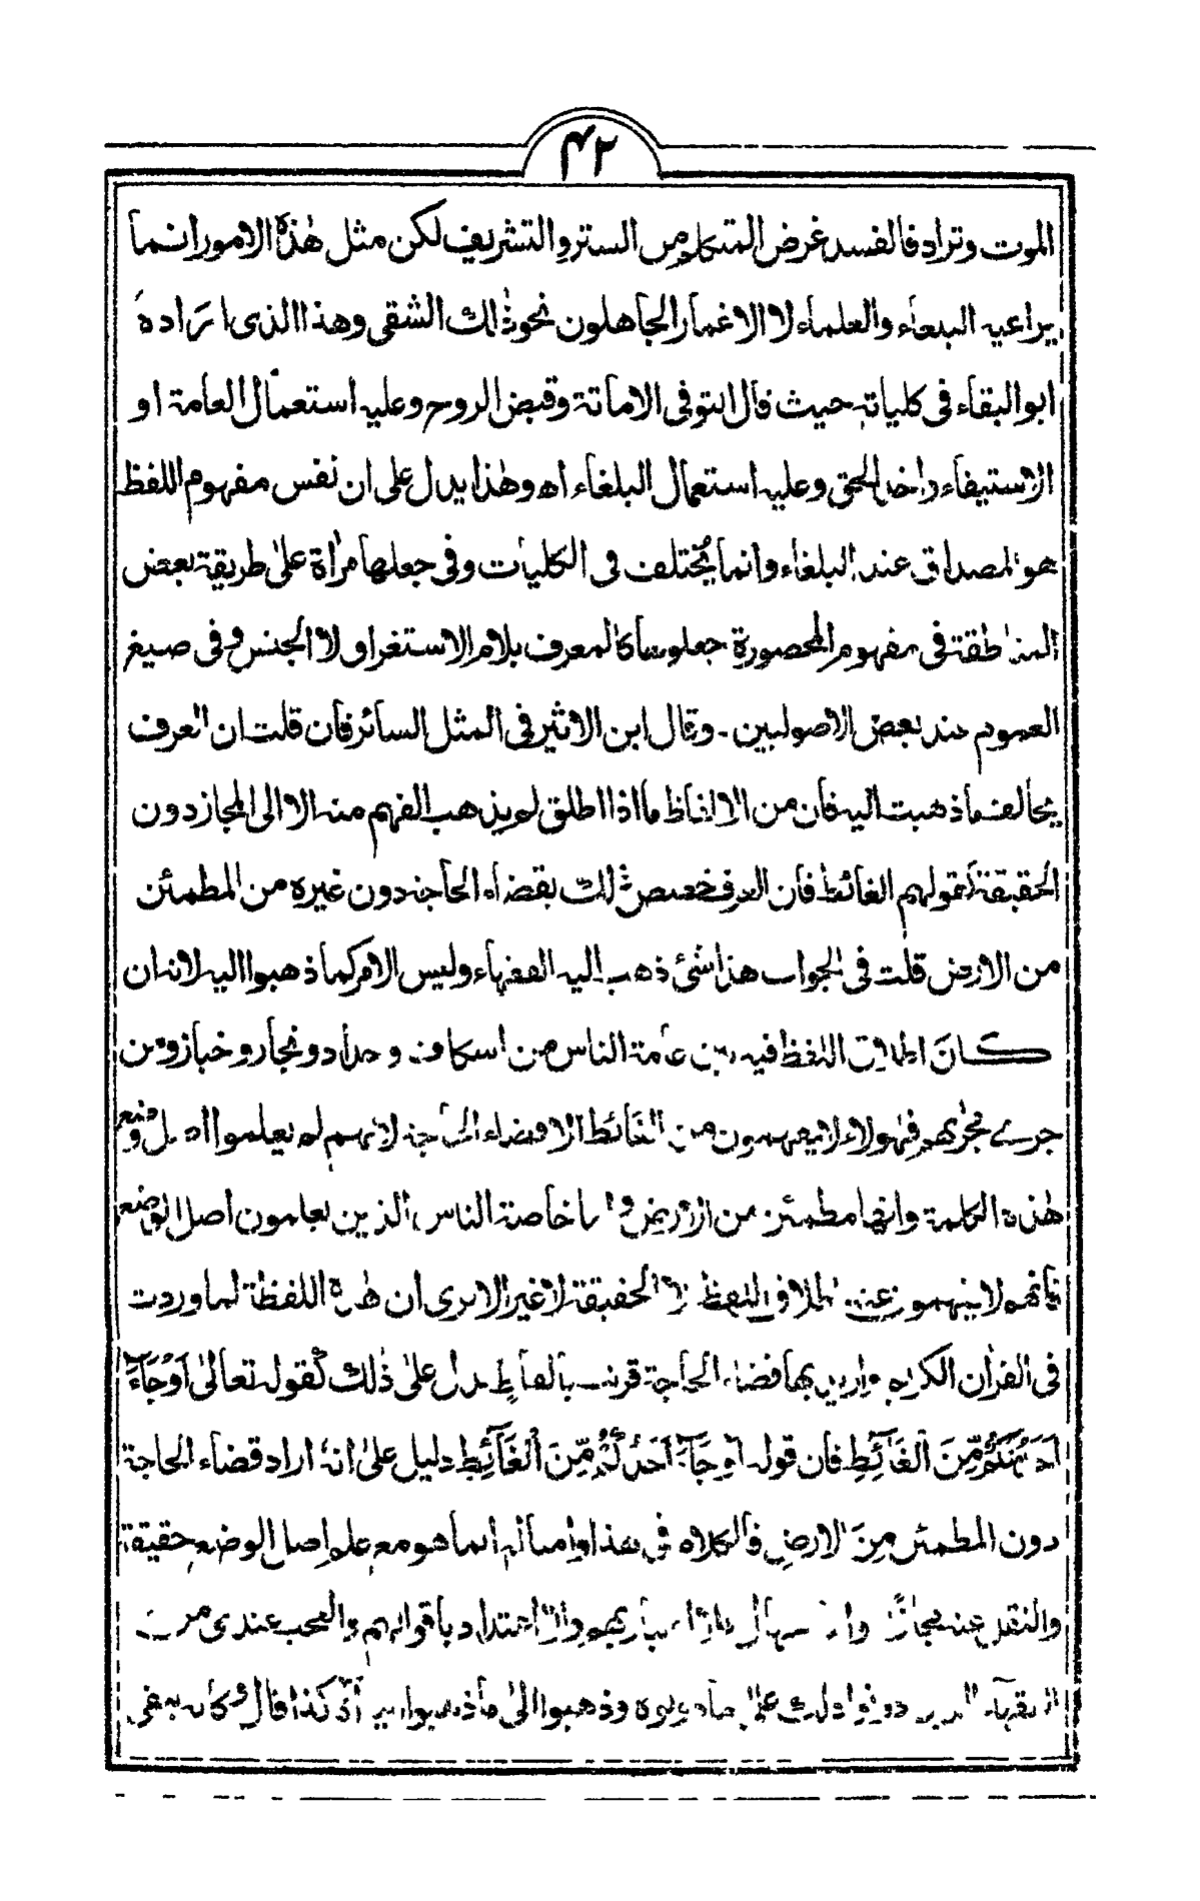 ۴۲
الموت وتراد فالفسد غرض المتكلم من الستر والتشريف لكن مثل هٰذه الامور انما
يراعيه البلغاء والعلماء لا الاغمار الجاهلون نحو ذٰلك الشقى وهذا الذى اراده
ابو البقاء فى كلياته حيث قال التوفى الاماتة وقبض الروح وعليه استعمال العامة او
الاستيفاء واخذ الحق وعليه استعمال البلغاء اه وهٰذا يدل على ان نفس مفهوم اللفظ
هو المصداق عند البلغاء وانما يُختلف فى الكليات وفى جعلها مرٰاة علىٰ طريقة بعض
المناطقة فى مفهوم المحصورة جعلوها كالمعرف بلام الاستغراق لا الجنس وفى صيغ
العموم عند بعض الاصوليين ۔ وقال ابن الاثير فى المثل السائر فان قلت ان العرف
يخالف ما ذهبت اليه فان من الالفاظ ما اذا اطلق لم يذهب الفهم منه الا الى المجاز دون
الحقيقة كقولهم الغائط فان العرف خصص ذٰلك بقضاء الحاجة دون غيره من المطمئن
من الارض قلت فى الجواب هذا شئ ذهب اليه الفقهاء وليس الامر كما ذهبوا اليه لانه ان
كانَ اطلاق اللفظ فيه بين عامة الناس من اسكاف وحداد ونجار وخباز ومن
جرے مجرٰىهم فهٰولاء لا يفهمون من الغائط الا قضاء الحاجة لانهم لم يعلموا اصل وضع
هٰذه الكلمة وانها مطمئن من الارض واما خاصة الناس الذين يعلمون اصل الوضع
فانهم لا يفهمون عند اطلاق اللفظ الا الحقيقة لا غير الا ترى ان هٰذه اللفظة لما وردت
فى القرآن الكريم واريد بها قضاء الحاجة قرنت بالفاظ تدل علىٰ ذٰلك كقوله تعالىٰ اَوْجَآءَ
اَحَدٌ مِّنْكُمْ مِّنَ الْغَآئِطِ فان قوله اَوْجَآءَ اَحَدٌ مِّنْكُمْ مِّنَ الْغَآئِطِ دليل علىٰ انه اراد قضاء الحاجة
دون المطمئن مِنَ الارضِ فالكلام فى هذا وامثاله انما هو مع علم اصل الوضع حقيقة
والنقل عنه مجازًا واما الجهال فلا اعتبار بهم ولا اعتداد باقوالهم والعجب عندى من
الفقهاء الذين دونوا ذلك علىٰ وذهبوا الىٰ ما ذهبوا اليه كذا قال وكانه بغى